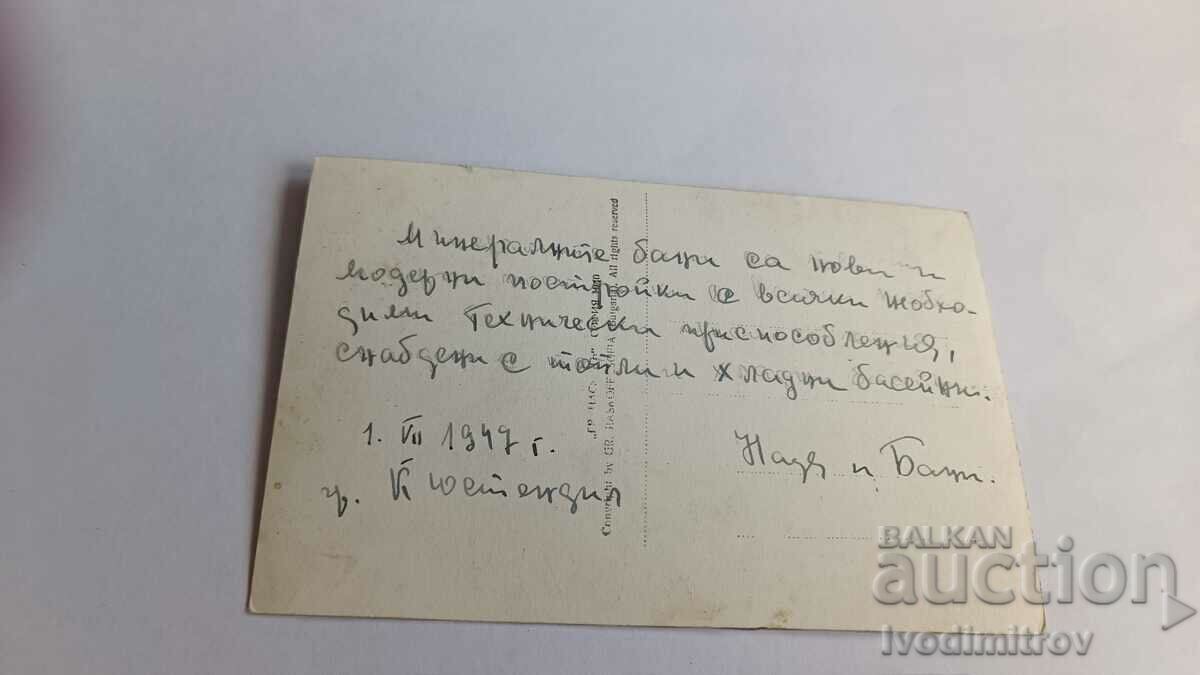 Минералните бани са нови и
модерни постройки с всички необхо-
дими технически приспособления,
снабдени с топли и хладни басейни.
1. VII 1947 г.
гр. Кюстендил
Надя и
Copyright by GR. PASKOFF All rights reserved
BALKAN
auction
Ivodimitrov